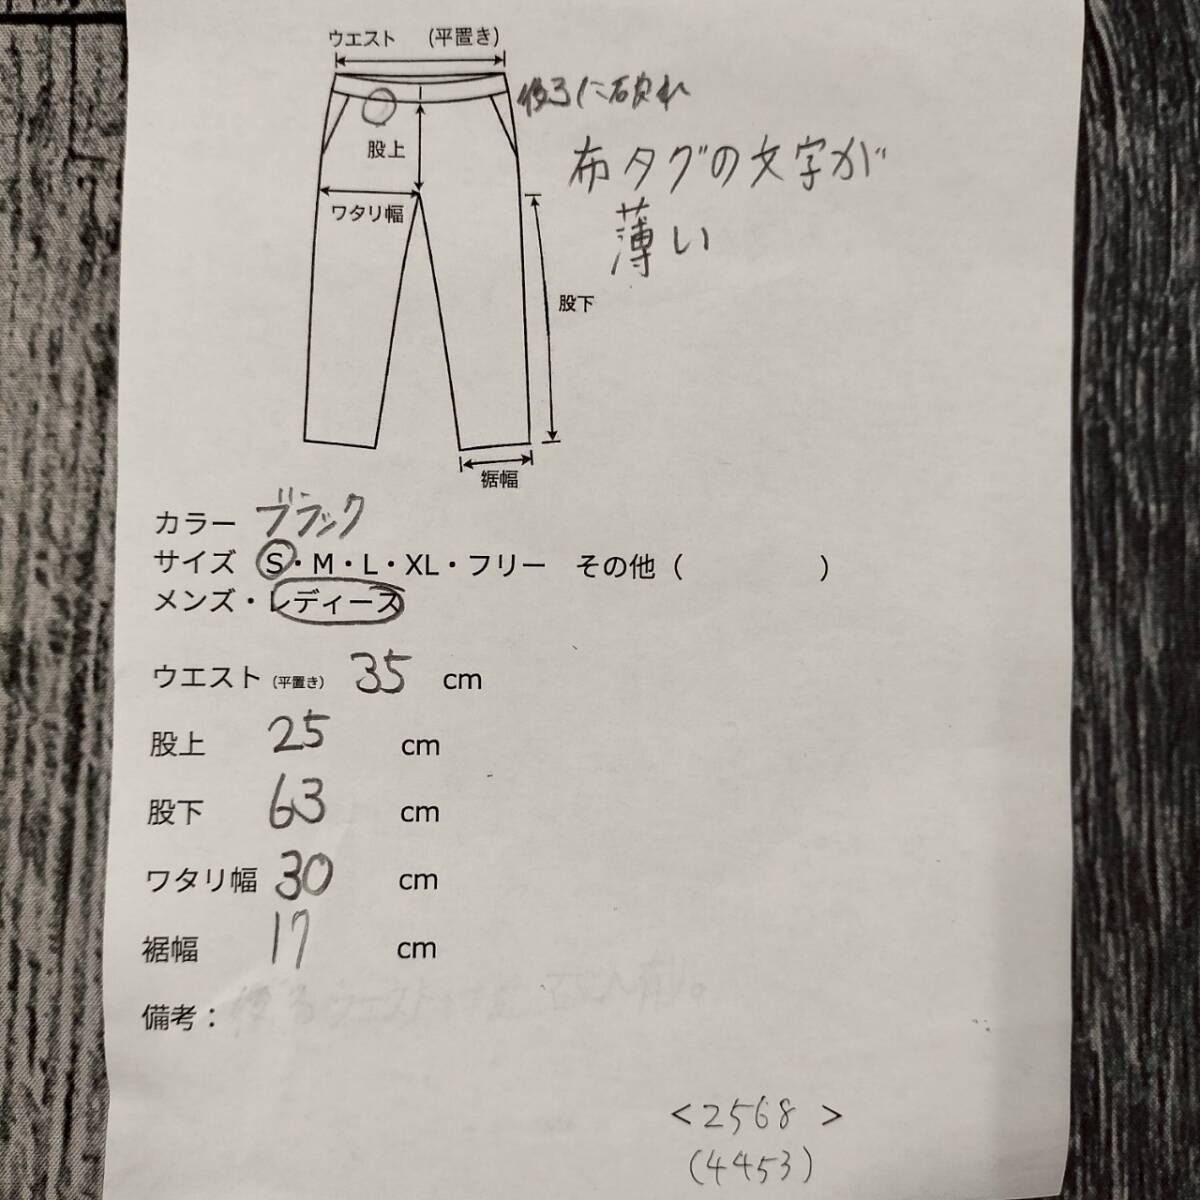 ウエスト (平置き)
後ろに破れ
股上
布タグの文字が
薄い
ワタリ幅
股下
裾幅
カラー ブラック
サイズ S・M・L・XL・フリー その他 ( )
メンズ・レディース
ウエスト (平置き) 35 cm
股上 25 cm
股下 63 cm
ワタリ幅 30 cm
裾幅 17 cm
備考：
<2568>
(4453)